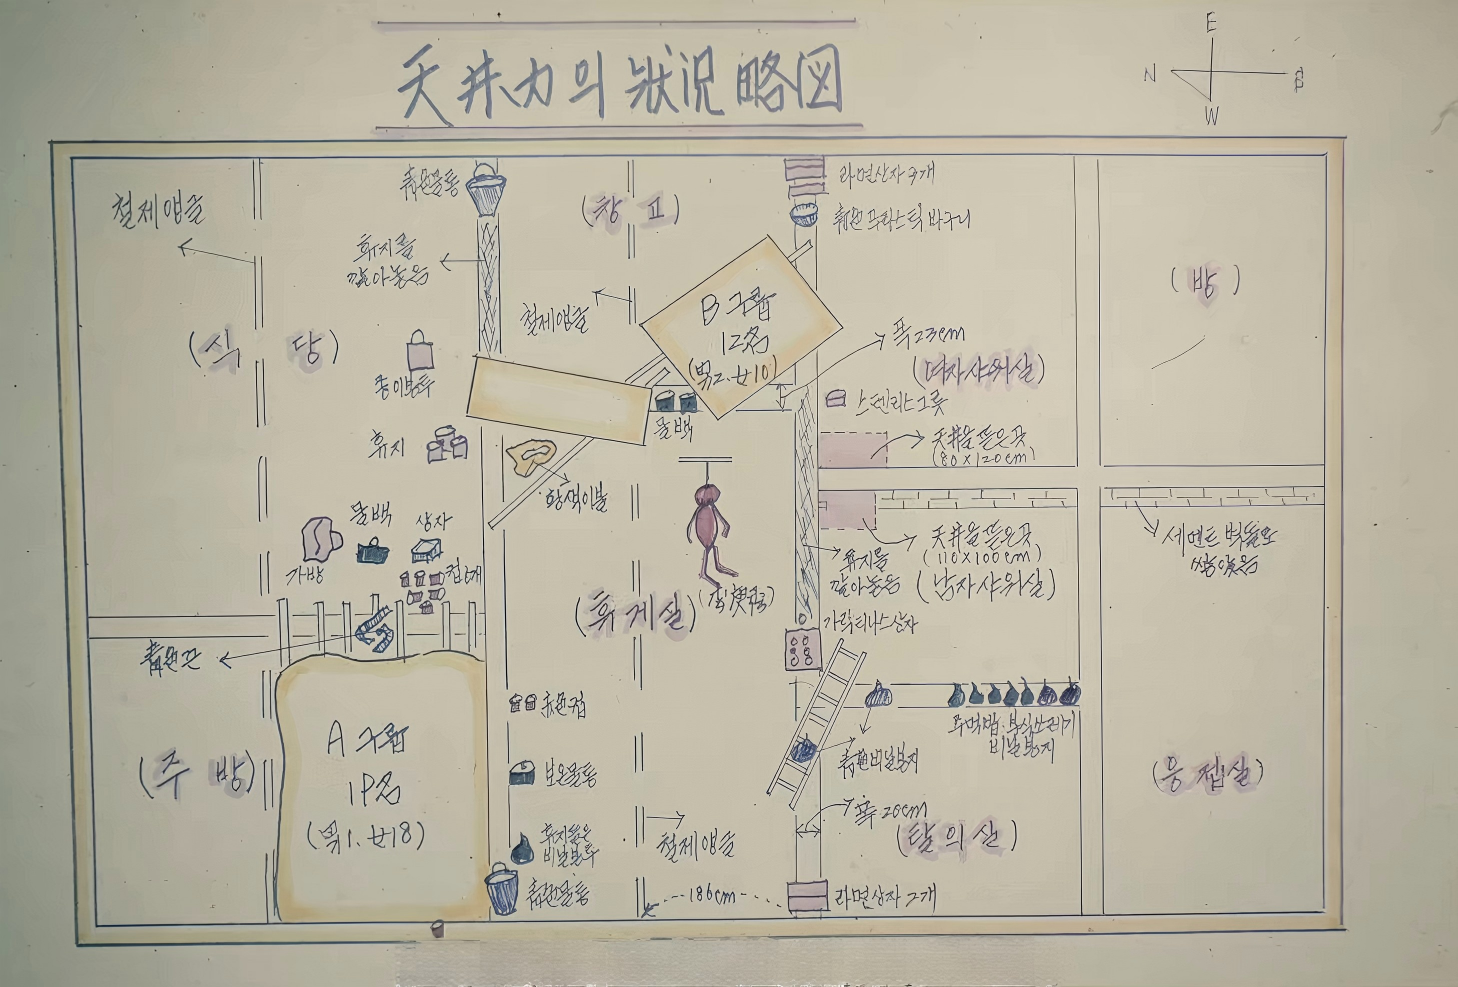 天井力의 狀況略図
E
N
W
철제앵글
靑色물통
(창고)
라면상자 7개
靑色프라스틱 바구니
휴지를
깔아놓음
(방)
철제앵글
B 그룹
12名
(男2. 女10)
폭 23cm
(식 당)
(여자샤워실)
종이봉투
스텐리스그릇
물백
天井을 뜯은곳
(80×120cm)
휴지
황색이불
물백
상자
가방
컵6개
天井을 뜯은곳
(110×100cm)
휴지를
깔아놓음
(남자샤워실)
세멘트 벽돌로
쌓았음
(휴게실)
가락티나스상자
靑色끈
赤色컵
주먹밥. 부식쓰레기
비닐봉지
A 그룹
19名
(男1. 女18)
(주 방)
보온물통
靑色비닐봉지
(응접실)
폭 20cm
휴지놓은
비닐봉투
철제앵글
(탈의실)
靑色물통
186cm
라면상자 2개